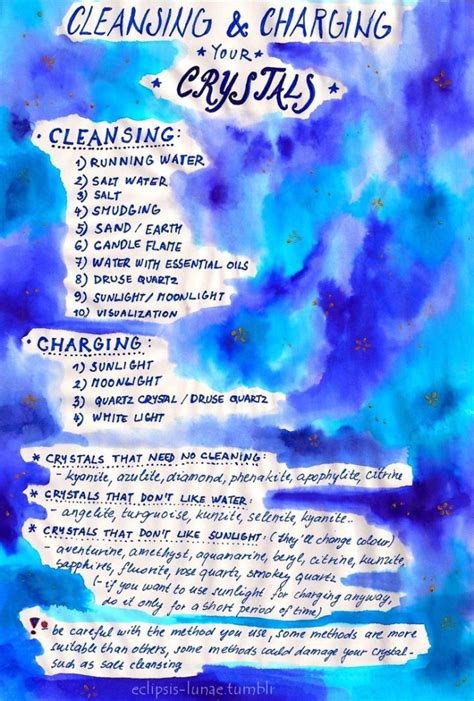 CLEANSING & CHARGING
* YOUR *
* CRYSTALS *
• CLEANSING:
1) RUNNING WATER
2) SALT WATER
3) SALT
4) SMUDGING
5) SAND / EARTH
6) CANDLE FLAME
7) WATER WITH ESSENTIAL OILS
8) DRUSE QUARTZ
9) SUNLIGHT / MOONLIGHT
10) VISUALIZATION
• CHARGING:
1) SUNLIGHT
2) MOONLIGHT
3) QUARTZ CRYSTAL / DRUSE QUARTZ
4) WHITE LIGHT
* CRYSTALS THAT NEED NO CLEANING:
- kyanite, azulite, diamond, phenakite, apophylite, citrine
* CRYSTALS THAT DON'T LIKE WATER:
- angelite, turquoise, kunzite, selenite, kyanite..
* CRYSTALS THAT DON'T LIKE SUNLIGHT: (they'll change colour)
- aventurine, amethyst, aquamarine, beryl, citrine, kunzite,
sapphires, fluorite, rose quartz, smokey quartz
(- if you want to use sunlight for charging anyway,
do it only for a short period of time)
! be careful with the method you use, some methods are more
suitable than others, some methods could damage your crystal-
such as salt cleansing
eclipsis-lunae.tumblr